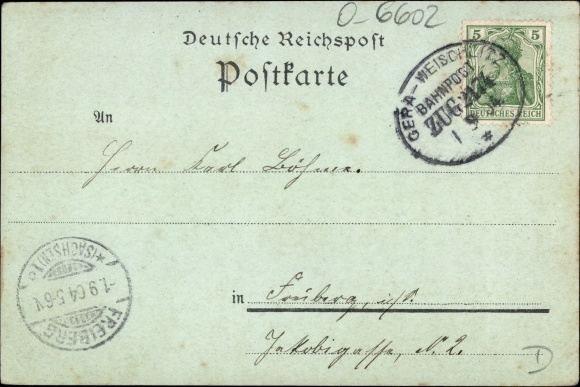 O-6602
Deutsche Reichspost
Postkarte
5 5
DEUTSCHES REICH
GERA - WEISCHLITZ
BAHNPOST
ZUG
1 9
An
Herrn Karl Böhme.
FREIBERG *(SACHSEN)1
-1.9 04 5-6 V
in Freiberg, i/S.
Jakobigasse, N. 2.
D